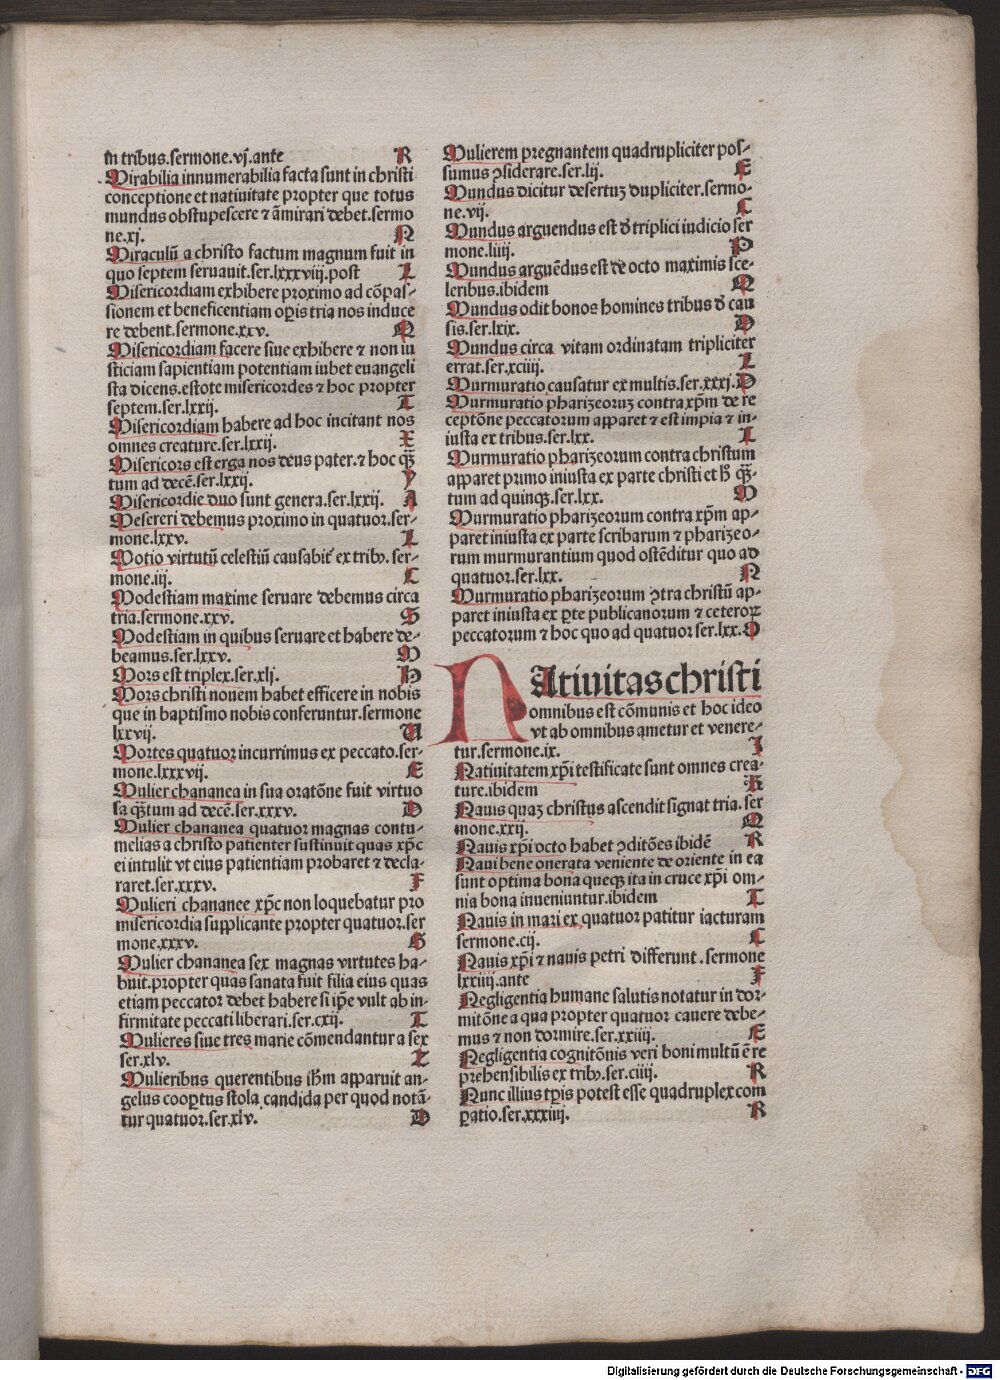 in tribus.sermone.vj.ante R
Mirabilia innumerabilia facta sunt in christi
conceptione et natiuitate propter que totus
mundus obstupescere ⁊ ãmirari debet.sermo
ne.xj. N
Miraculũ a christo factum magnum fuit in
quo septem seruauit.ser.lxxxviij.post L
Misericordiam exhibere proximo ad cõpas-
sionem et beneficentiam oꝑis tria nos induce
re debent.sermone.xxv. Q
Misericordiam facere siue exhibere ⁊ non iu
sticiam sapientiam potentiam iubet euangeli
sta dicens.estote misericordes ⁊ hoc propter
septem.ser.lxxij. T
Misericordiam habere ad hoc incitant nos
omnes creature.ser.lxxij. X
Misericors est erga nos deus pater.⁊ hoc qȝ̃
tum ad decẽ.ser.lxxij. Y
Misericordie duo sunt genera.ser.lxxij. A
Mesereri debemus proximo in quatuor.ser-
mone.lxxv. L
Motio virtutũ celestiũ causabit᷑ ex tribꝰ.ser-
mone.iij. C
Modestiam maxime seruare debemus circa
tria.sermone.xxv. S
Modestiam in quibus seruare et habere de-
beamus.ser.lxxv. M
Mors est triplex.ser.xlj. H
Mors christi nouem habet efficere in nobis
que in baptismo nobis conferuntur.sermone
lxxvij. U
Mortes quatuor incurrimus ex peccato.ser-
mone.lxxxvij. E
Mulier chananea in sua oratõne fuit virtuo
sa qȝ̃tum ad decẽ.ser.xxxv. D
Mulier chananea quatuor magnas contu-
melias a christo patienter sustinuit quas xp̃c
ei intulit vt eius patientiam probaret ⁊ decla-
raret.ser.xxxv. F
Mulieri chananee xp̃c non loquebatur pro
misericordia supplicante propter quatuor.ser
mone.xxxv. G
Mulier chananea sex magnas virtutes ha-
buit.propter quas sanata fuit filia eius quas
etiam peccator debet habere si ip̃e vult ab in-
firmitate peccati liberari.ser.cxij. T
Mulieres siue tres marie cõmendantur a sex
ser.xlv. Z
Mulieribus querentibus ih̃m apparuit an-
gelus cooꝑtus stola candida per quod notã-
tur quatuor.ser.xlv. D
Mulierem pregnantem quadrupliciter pos-
sumus ꝯsiderare.ser.lij. E
Mundus dicitur desertuȝ dupliciter.sermo-
ne.vij. C
Mundus arguendus est đ triplici iudicio ser
mone.liiij. P
Mundus arguẽdus est de octo maximis sce-
leribus.ibidem Q
Mundus odit bonos homines tribus đ cau
sis.ser.lxix. D
Mundus circa vitam ordinatam tripliciter
errat.ser.xciiij. L
Murmuratio causatur ex multis.ser.xxxj. D
Murmuratio pharizeoruȝ contra xp̃m de re
ceptõne peccatorum apparet ⁊ est impia ⁊ in-
iusta ex tribus.ser.lxx. L
Murmuratio pharizeorum contra christum
apparet primo iniusta ex parte christi et h̃ qȝ̃-
tum ad quinqȝ.ser.lxx. M
Murmuratio pharizeorum contra xp̃m ap-
paret iniusta ex parte scribarum ⁊ pharizeo-
rum murmurantium quod ostẽditur quo ad
quatuor.ser.lxx. N
Murmuratio pharizeorum ꝯtra christũ ap-
paret iniusta ex ꝑte publicanorum ⁊ ceteroꝝ
peccatorum ⁊ hoc quo ad quatuor ser.lxx. O
NAtiuitas christi
omnibus est cõmunis et hoc ideo
vt ab omnibus ametur et venere-
tur.sermone.ix. I
Natiuitatem xp̃i testificate sunt omnes crea-
ture.ibidem K
Nauis quaȝ christus ascendit signat tria.ser
mone.xxij. Q
Nauis xp̃i octo habet ꝯditões ibidẽ R
Naui bene onerata veniente de oriente in ea
sunt optima bona queqȝ ita in cruce xp̃i om-
nia bona inueniuntur.ibidem T
Nauis in mari ex quatuor patitur iacturam
sermone.cij. C
Nauis xp̃i ⁊ nauis petri differunt.sermone
lxxiiij.ante F
Negligentia humane salutis notatur in dor-
mitõne a qua propter quatuor cauere debe-
mus ⁊ non dormire.ser.xxiiij. E
Negligentia cognitõnis veri boni multũ ẽ re
prehensibilis ex tribꝰ.ser.ciiij. R
Nunc illius tꝑis potest esse quadruplex com
ꝑatio.ser.xxxiiij. R
Digitalisierung gefördert durch die Deutsche Forschungsgemeinschaft - DFG